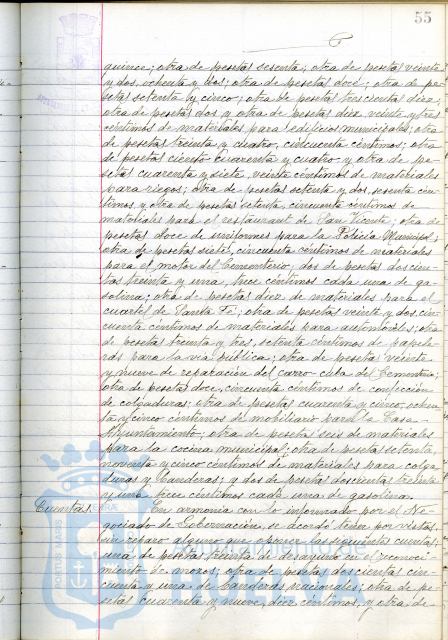 55
quince; otra de pesetas sesenta; otra de pesetas veinte
y dos, ochenta y dos; otra de pesetas doce; otra de pe-
setas setenta y cinco; otra de pesetas trescientas diez
otra de pesetas dos y otra de pesetas diez, veinte y tres
céntimos de materiales para edificios municipales; otra
de pesetas treinta y cuatro, cincuenta céntimos; otra
de pesetas ciento cuarenta y cuatro y otra de pe-
setas cuarenta y siete, veinte céntimos de materiales
para riegos; otra de pesetas setenta y dos, sesenta cén-
timos, y otra de pesetas setenta, cincuenta céntimos de
materiales para el restaurant de San Vicente; otra de
pesetas doce de uniformes para la Policía Municipal;
otra de pesetas siete, cincuenta céntimos de materiales
para el motor del Cementerio; dos de pesetas doscien-
tas treinta y una, trece céntimos cada una de ga-
solina; otra de pesetas diez de materiales para el
cuartel de Santa Fé; otra de pesetas veinte y dos, cin-
cuenta céntimos de materiales para automóviles; otra
de pesetas treinta y tres, setenta céntimos de papele-
ras para la vía pública; otra de pesetas veinte
y nueve de reparación del carro-cuba del Cementerio;
otra de pesetas doce, cincuenta céntimos de confección
de colgaduras; otra de pesetas cuarenta y cinco, ochen-
ta y cinco céntimos de mobiliario para la Casa-
Ayuntamiento; otra de pesetas seis de materiales
para la cocina municipal; otra de pesetas setenta,
noventa y cinco céntimos de materiales para colga
duras y banderas; y dos de pesetas doscientas treinta
y una trece céntimos cada una de gasolina.
Cuentas En armonía con lo informado por el Ne-
gociado de Gobernación, se acordó tener por vistas,
sin reparo alguno que oponer las siguientes cuentas:
una de pesetas treinta de desayuno en el reconoci-
miento de mozos; otra de pesetas doscientas cin-
cuenta y una de banderas nacionales; otra de pe-
setas cuarenta y nueve, diez céntimos, y otra de